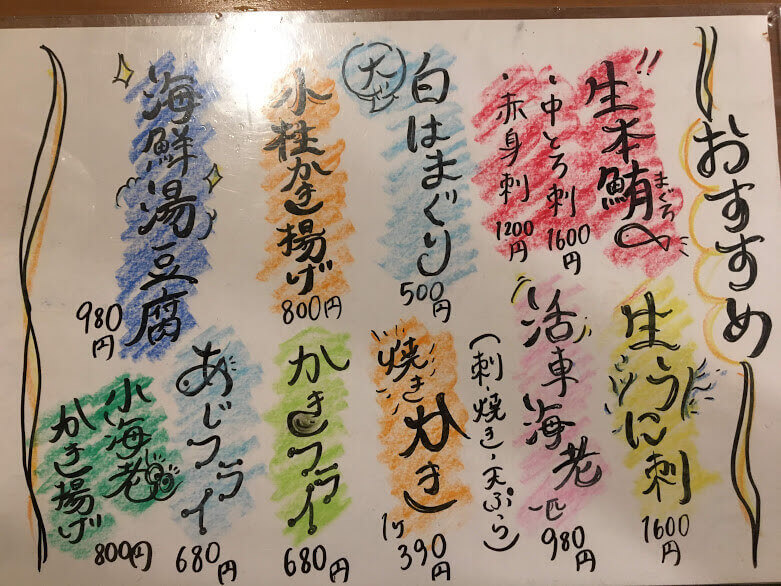 おすすめ
生本鮪
まぐろ
・中とろ刺
1600円
・赤身刺
1200円
大
白はまぐり
500円
小柱かき揚げ
800円
海鮮湯豆腐
980円
生うに刺
1600円
活車海老
一匹
980円
(刺・焼き・天ぷら)
焼きかき
1ヶ
390円
かきフライ
680円
あじフライ
680円
小海老
かき揚げ
800円